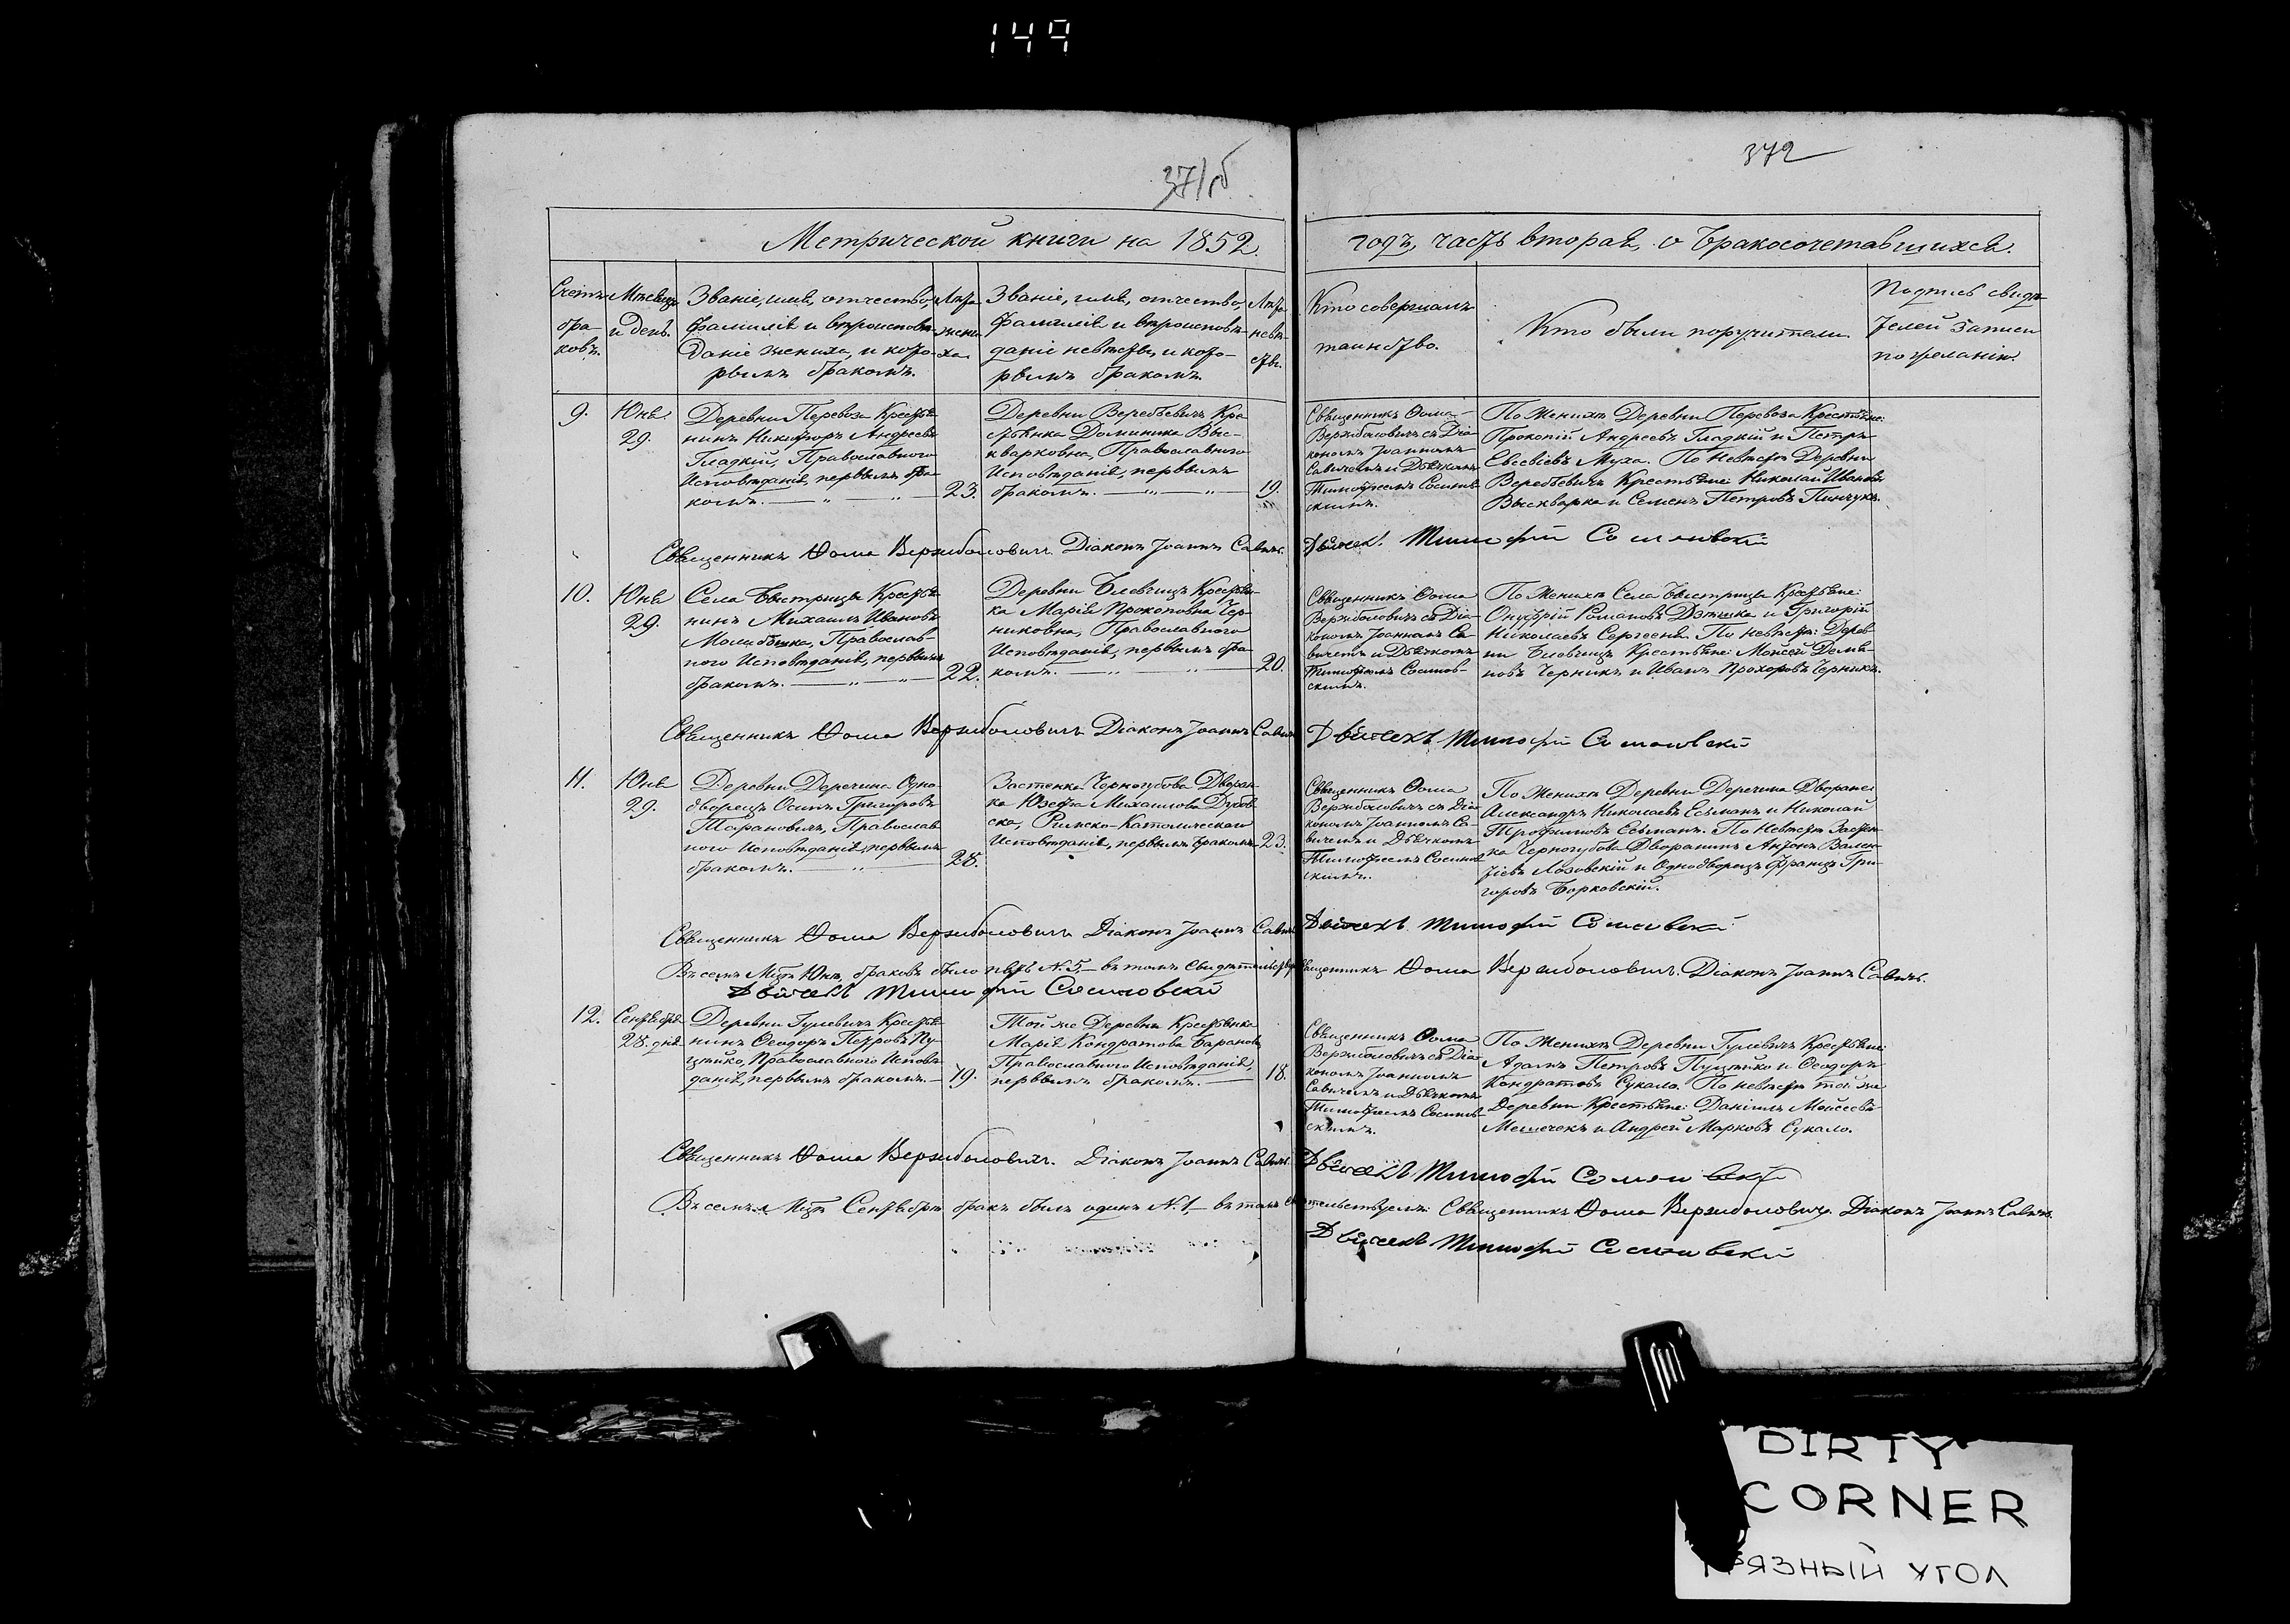 149
371об
372
Метрической книги на 1852.
годъ, часть вторая, о бракосочетавшихся.
Счетъ
бра-
ковъ.
Мѣсяцъ
и день.
Званіе, имя, отчество,
фамилія и вѣроисповѣ-
даніе жениха, и кото-
рымъ бракомъ.
Лѣта
жени-
ха.
Званіе, имя, отчество,
фамилія и вѣроисповѣ-
даніе невѣсты, и кото-
рымъ бракомъ.
Лѣта
невѣ-
сты.
Кто совершалъ
таинство.
Кто были поручители.
Подпись свидѣ-
телей записи
по желанію.
9.
Юня
29.
Деревни Перевоза Крестья-
нинъ Никифоръ Андреевъ
Гладкій, Православного
Исповѣданія, первымъ бра-
комъ.
23.
Деревни Веребьевичъ Кре-
стьянка Доминика Выс-
кварковна, Православного
Исповѣданія, первымъ
бракомъ.
19.
Священникъ Ѳома
Вержболовичъ съ Діа-
кономъ Іоанномъ
Савичемъ и Дьячкомъ
Тимофеемъ Сосинов-
скимъ.
По Женихѣ Деревни Перевоза Крестьяне:
Прокопій Андреевъ Гладкій и Петръ
Евсевіевъ Муха. По Невѣстѣ Деревни
Веребьевичъ Крестьяне: Николай Ивановъ
Выскварка и Семенъ Петровъ Пинчукъ.
Священникъ Ѳома Вержболовичъ. Діаконъ Іоаннъ Савичъ.
Дьячекъ Тимофей Сосиновскій
10.
Юня
29.
Села Быстрицы Крестья-
нинъ Михаилъ Ивановъ
Православ-
ного Исповѣданія, первымъ
бракомъ.
22.
Деревни Блевчицъ Крестьян-
ка Марія Прокоповна Чер-
никовна, Православного
Исповѣданія, первымъ бра-
комъ.
20.
Священникъ Ѳома
Вержболовичъ съ Діа-
кономъ Іоанномъ Са-
вичемъ и Дьячкомъ
Тимофеемъ Сосинов-
скимъ.
По Женихѣ Села Быстрицы Крестьяне:
Онуфрій Романовъ и Григорій
Николаевъ Сергееня. По Невѣстѣ: Дерев-
ни Блевчицъ Крестьяне: Моисей Демья-
новъ Черникъ и Иванъ Прохоровъ Черникъ.
Священникъ Ѳома Вержболовичъ Діаконъ Іоаннъ Савичъ
Дьячекъ Тимофей Сосиновскій
11.
Юня
29.
Деревни Деречина Одно-
дворецъ Осипъ Григоровъ
Тарановичъ, Православ-
ного Исповѣданія, первымъ
бракомъ.
28.
Застенка Черногубова Дворян-
ка Юзефа Михаилова Дубов-
ска, Римско-Католическаго
Исповѣданія, первымъ бракомъ
23.
Священникъ Ѳома
Вержболовичъ съ Діа-
кономъ Іоанномъ Са-
вичемъ и Дьячкомъ
Тимофеемъ Сосинов-
скимъ.
По Женихѣ Деревни Деречина Дворяне:
Александръ Николаевъ Есьманъ и Николай
Трофимовъ Есьманъ. По Невѣстѣ Застен-
ка Черногубова Дворянинъ Антонъ Вален-
тіевъ Лозовскій и Однодворецъ Францъ Гри-
горовъ Борковскій.
Священникъ Ѳома Вержболовичъ Діаконъ Іоаннъ Савичъ
Дьячекъ Тимофей Сосиновскій
Въ семъ Мцѣ Юнѣ, браковъ было пять N. 5, въ томъ свидѣтельствуемъ Священникъ Ѳома Вержболовичъ. Діаконъ Іоаннъ Савичъ.
Дьячекъ Тимофей Сосиновскій
12.
Сентября
28. дня
Деревни Гулевичъ Крестья-
нинъ Ѳеодоръ Петровъ Пу-
цейко, Православного Исповѣ-
данія, первымъ бракомъ.
19.
Той же Деревни Крестьянка
Марія Кондратова Баранова
Православного Исповѣданія,
первымъ бракомъ.
18.
Священникъ Ѳома
Вержболовичъ съ Діа-
кономъ Іоанномъ
Савичемъ и Дьячкомъ
Тимофеемъ Сосинов-
скимъ.
По Женихѣ Деревни Гулевичъ Крестьяне:
Адамъ Петровъ Пуцейко и Ѳеодоръ
Кондратовъ Сукало. По Невѣстѣ той же
Деревни Крестьяне: Даніилъ Моисеевъ
Мешечекъ и Андрей Марковъ Сукало.
Священникъ Ѳома Вержболовичъ. Діаконъ Іоаннъ Савичъ.
Дьячекъ Тимофей Сосиновскій
Въ семъ Мцѣ Сентябрѣ бракъ былъ одинъ N. 1 въ томъ свидѣтельствуемъ: Священникъ Ѳома Вержболовичъ. Діаконъ Іоаннъ Савичъ.
Дьячекъ Тимофей Сосиновскій
DIRTY
CORNER
ГРЯЗНЫЙ УГОЛ